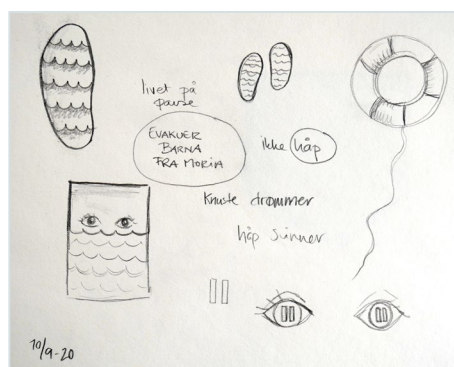 livet på
pause
EVAKUER
BARNA
FRA MORIA
ikke håp
Knuste drømmer
håp svinner
10/9-20